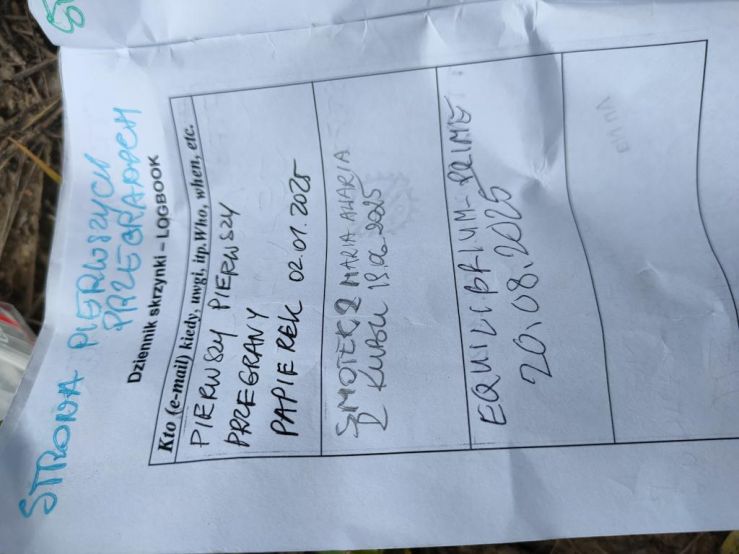 STRONA PIERWSZYCH
PRZEGRANYCH
Dziennik skrzynki – LOGBOOK
Kto (e-mail) kiedy, uwgi, itp.Who, when, etc.
PIERWSZY PIERWSZY
PRZEGRANY
PAPIEREK 02.01.2025
SMOTEK 2 MARIA
KUBU 2025
EQUILIBRIUM-PRIME
20.08.2025